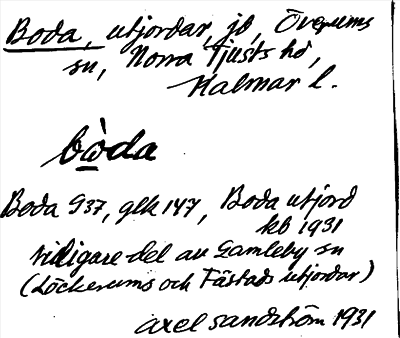 Boda, utjordar, jb, Överums
sn, Norra Tjusts hd,
Kalmar l.
bòda
Boda 937, glk 147, Boda utjord
kb 1931
tidigare del av Gamleby sn
(Löckerums och Fästads utjordar)
Axel Sandström 1931